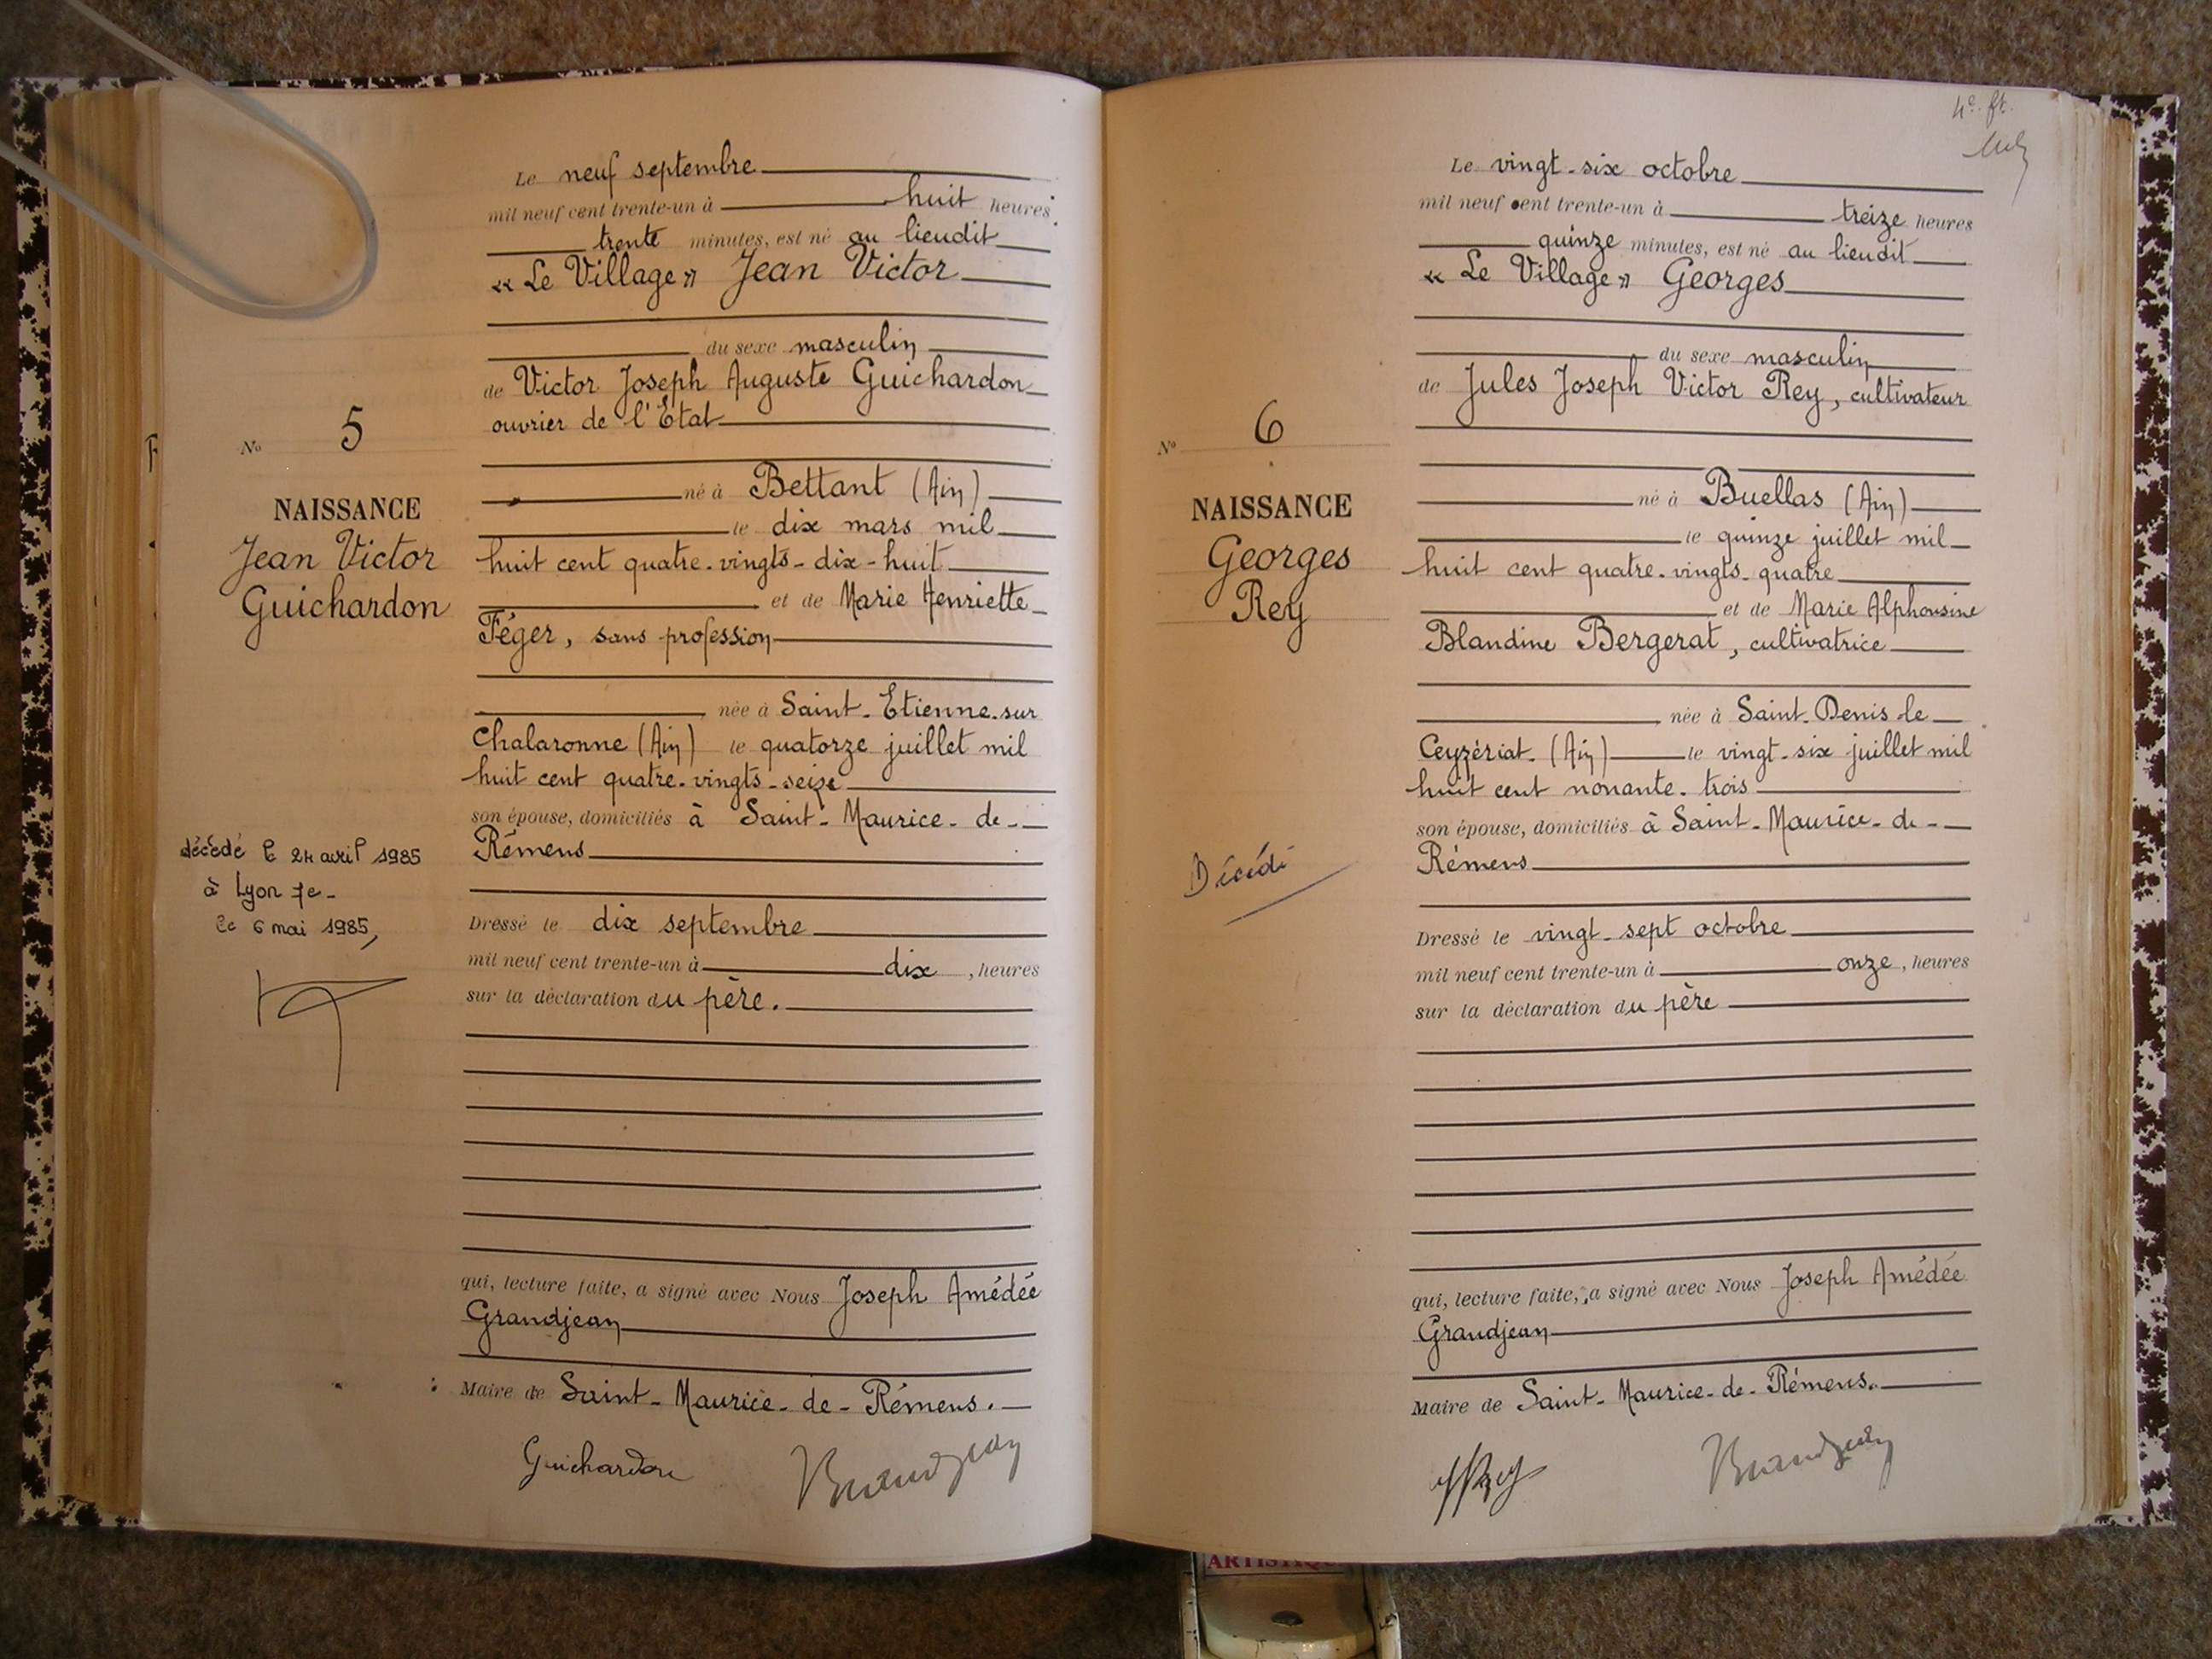 Le neuf septembre
mil neuf cent trente-un à huit heures
trente minutes, est né au lieudit
« Le Village » Jean Victor
du sexe masculin
de Victor Joseph Auguste Guichardon
ouvrier de l'Etat
né à Bettant (Ain)
le dix mars mil
huit cent quatre-vingts-dix-huit
et de Marie Henriette
Féger, sans profession
née à Saint-Etienne-sur
Chalaronne (Ain) le quatorze juillet mil
huit cent quatre-vingts-seize
son épouse, domiciliés à Saint-Maurice-de-
Rémens
Dressé le dix septembre
mil neuf cent trente-un à dix, heures
sur la déclaration du père.
qui, lecture faite, a signé avec Nous Joseph Amédée
Grandjean
Maire de Saint-Maurice-de-Rémens.
Guichardon Grandjean
No 5
NAISSANCE
Jean Victor
Guichardon
décédé le 24 avril 1985
à Lyon 7e-
Le 6 mai 1985,
4e ft.
Le vingt-six octobre
mil neuf cent trente-un à treize heures
quinze minutes, est né au lieudit
« Le Village » Georges
du sexe masculin
de Jules Joseph Victor Rey, cultivateur
né à Buellas (Ain)
le quinze juillet mil
huit cent quatre-vingts-quatre
et de Marie Alphonsine
Blandine Bergerat, cultivatrice
née à Saint-Denis-le
Ceyzériat (Ain) le vingt-six juillet mil
huit cent nonante-trois
son épouse, domiciliés à Saint-Maurice-de-
Rémens
Dressé le vingt-sept octobre
mil neuf cent trente-un à onze, heures
sur la déclaration du père
qui, lecture faite, a signé avec Nous Joseph Amédée
Grandjean
Maire de Saint-Maurice-de-Rémens.
Rey Grandjean
No 6
NAISSANCE
Georges
Rey
Décédé